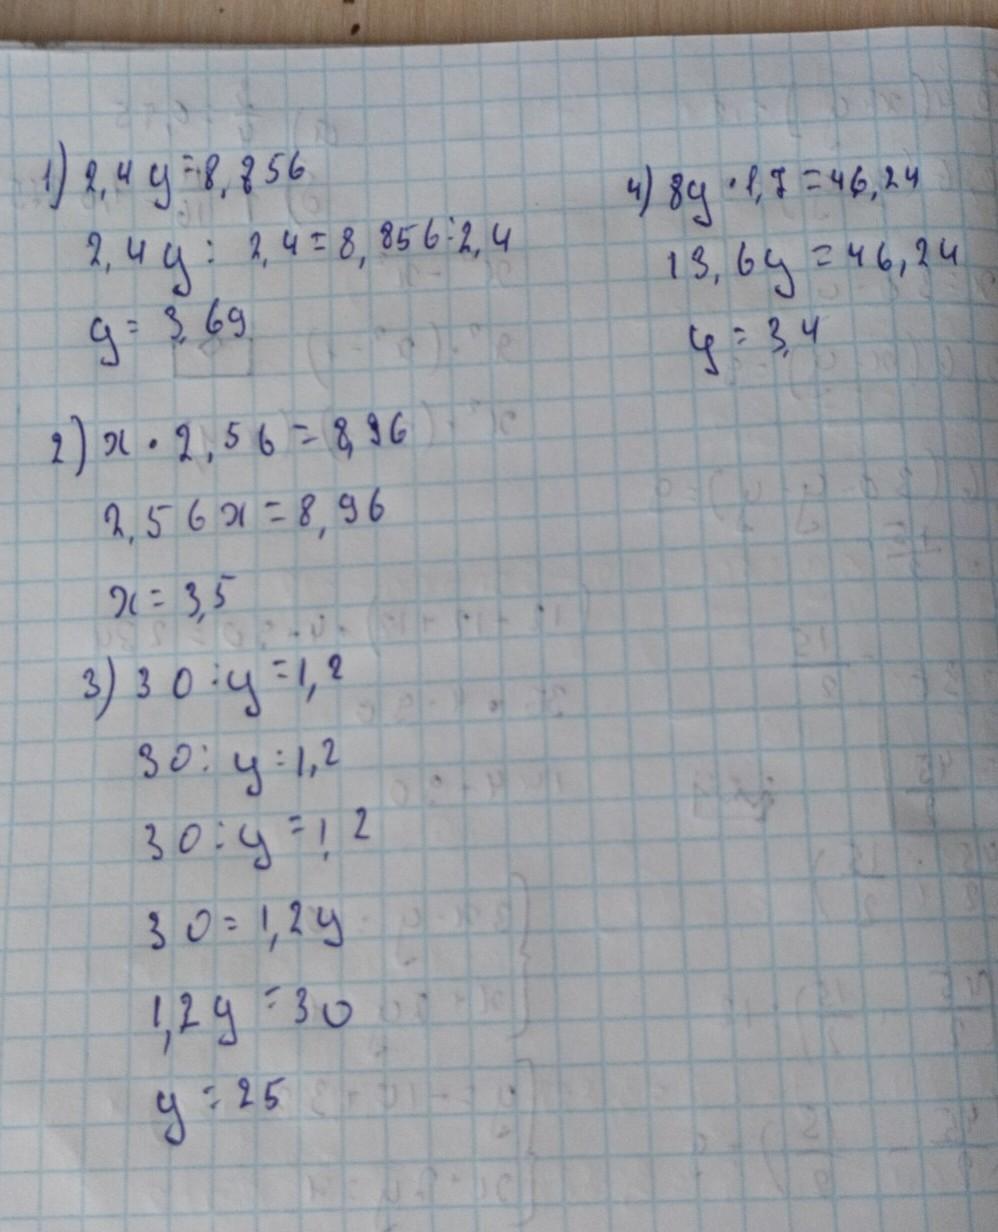 1) 2,4y=8,856
2,4y : 2,4=8,856:2,4
y=3,69
2) x·2,56=8,96
2,56x=8,96
x=3,5
3) 30:y=1,2
30:y=1,2
30:y=1,2
30=1,2y
1,2y=30
y=25
4) 8y·1,7=46,24
13,6y=46,24
y=3,4